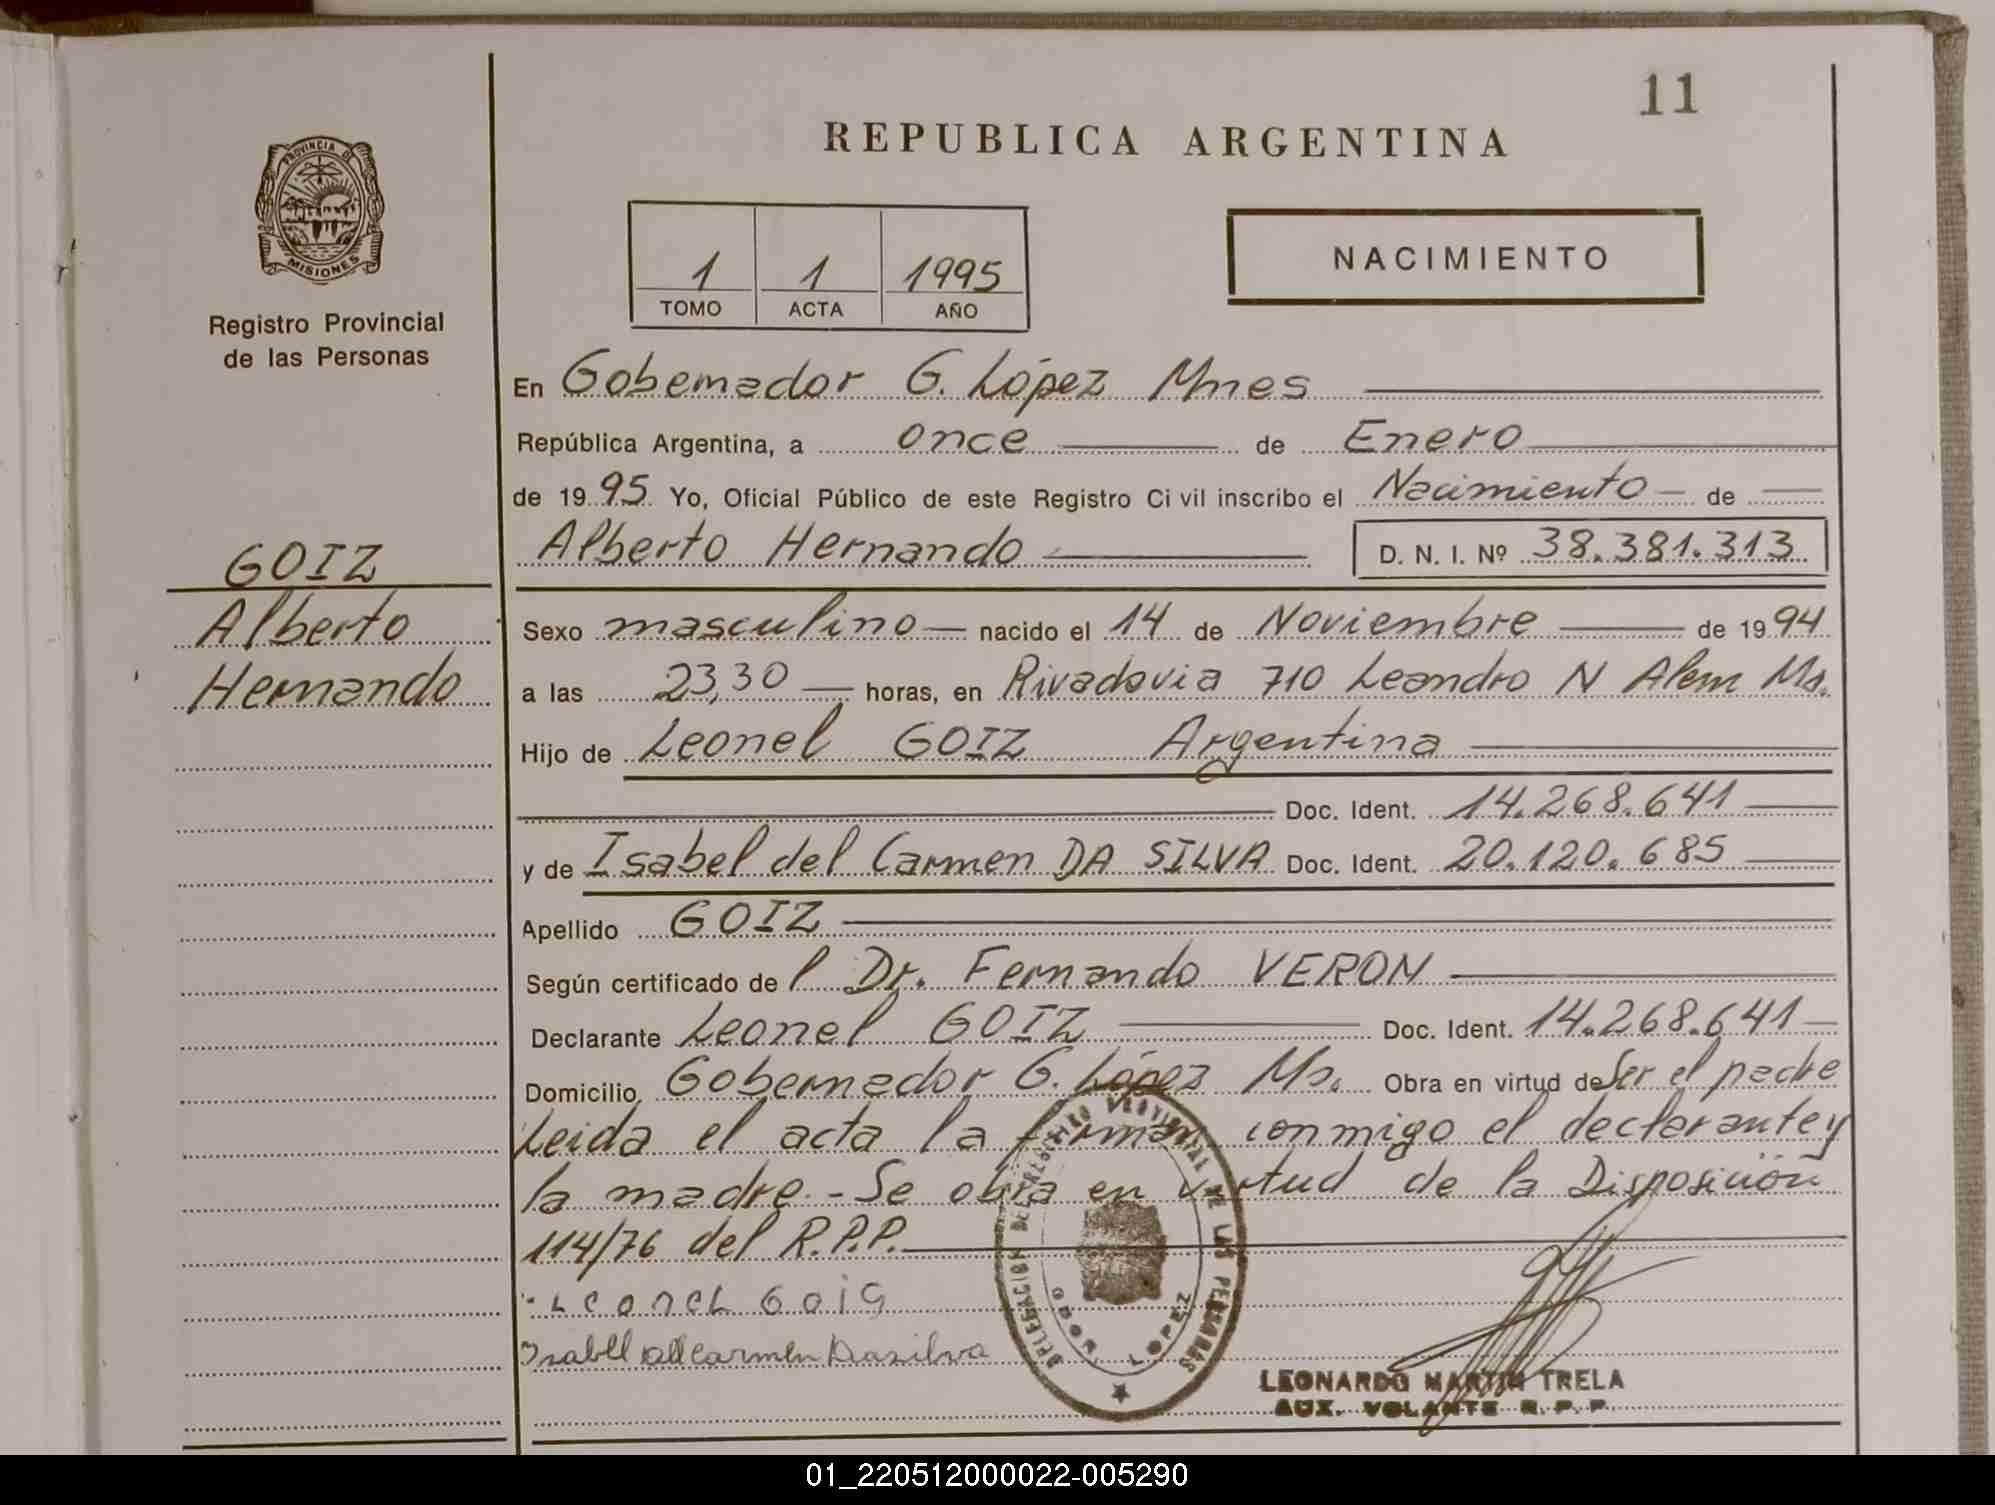 11
REPUBLICA ARGENTINA
PROVINCIA DE
MISIONES
Registro Provincial
de las Personas
1 1 1995
TOMO ACTA AÑO
NACIMIENTO
En Gobernador G. López Mnes
República Argentina, a once de Enero
de 1995 Yo, Oficial Público de este Registro Ci vil inscribo el Nacimiento de
Alberto Hernando D. N. I. Nº 38.381.313
GOIZ
Alberto
Hernando
Sexo masculino nacido el 14 de Noviembre de 1994
a las 23,30 horas, en Rivadavia 710 Leandro N Alem Ms.
Hijo de Leonel GOIZ Argentina
Doc. Ident. 14.268.641
y de Isabel del Carmen DA SILVA Doc. Ident. 20.120.685
Apellido GOIZ
Según certificado de l Dr. Fernando VERON
Declarante Leonel GOIZ Doc. Ident. 14.268.641
Domicilio Gobernador G. López Ms. Obra en virtud de Ser el padre
Leida el acta la firman conmigo el declarante y
la madre.- Se obra en virtud de la Disposición
114/76 del R.P.P.
Leonel Goiz
Isabel del Carmen Dasilva
DELEGACION DEL REGISTRO PROVINCIAL DE LAS PERSONAS
GDOR. LOPEZ
LEONARDO MARTIN TRELA
AUX. VOLANTE R.P.P.
01_220512000022-005290